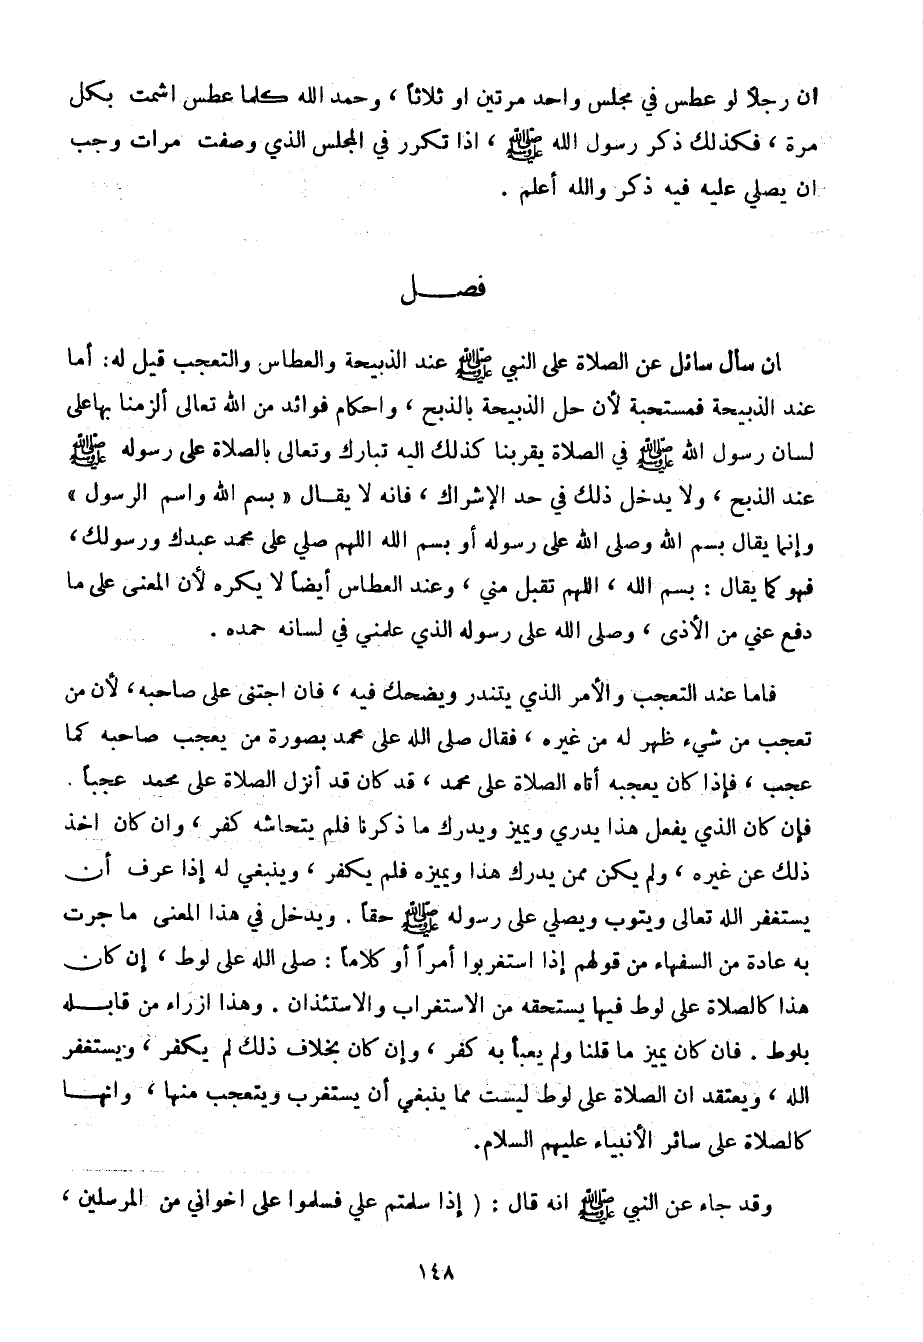 ان رجلاً لو عطس في مجلس واحد مرتين او ثلاثاً ، وحمد الله كلما عطس اشمت بكل
مرة ، فكذلك ذكر رسول الله ﷺ ، اذا تكرر في المجلس الذي وصفت مرات وجب
ان يصلي عليه فيه ذكر والله أعلم .
فصـــل
ان سأل سائل عن الصلاة على النبي ﷺ عند الذبيحة والعطاس والتعجب قيل له: أما
عند الذبيحة فمستحبة لأن حل الذبيحة بالذبح ، واحكام فوائد من الله تعالى ألزمنا بهاعلى
لسان رسول الله ﷺ في الصلاة يقربنا كذلك اليه تبارك وتعالى بالصلاة على رسوله ﷺ
عند الذبح ، ولا يدخل ذلك في حد الإشراك ، فانه لا يقـال « بسم الله واسم الرسول »
وإنما يقال بسم الله وصلى الله على رسوله أو بسم الله اللهم صلي على محمد عبدك ورسولك،
فهو كما يقال : بسم الله ، اللهم تقبل مني ، وعند العطاس أيضاً لا يكره لأن المعنى على ما
دفع عني من الأذى ، وصلى الله على رسوله الذي علمني في لسانه حمده .
فاما عند التعجب والأمر الذي يتندر ويضحك فيه ، فان اجتنى على صاحبه، لأن من
تعجب من شيء ظهر له من غيره ، فقال صلى الله على محمد بصورة من يعجب صاحبه كما
عجب ، فإذا كان يعجبه أتاه الصلاة على محمد ، قد كان قد أنزل الصلاة على محمد عجباً .
فإن كان الذي يفعل هذا يدري ويميز ويدرك ما ذكرنا فلم يتحاشه كفر ، وان كان اخذ
ذلك عن غيره ، ولم يكن ممن يدرك هذا ويميزه فلم يكفر ، وينبغي له إذا عرف أن
يستغفر الله تعالى ويتوب ويصلي على رسوله ﷺ حقاً . ويدخل في هذا المعنى ما جرت
به عادة من السفهاء من قولهم إذا استغربوا أمراً أو كلاماً : صلى الله على لوط ، إن كان
هذا كالصلاة على لوط فيها يستحقه من الاستغراب والاستئذان . وهذا ازراء من قابـله
بلوط . فان كان يميز ما قلنا ولم يعبأ به كفر ، وإن كان بخلاف ذلك لم يكفر ، ويستغفر
الله ، ويعتقد ان الصلاة على لوط ليست مما ينبغي أن يستغرب ويتعجب منها ، وانهـا
كالصلاة على سائر الأنبياء عليهم السلام.
وقد جاء عن النبي ﷺ انه قال : ( إذا سلمتم علي فسلموا على اخواني من المرسلين ،
١٤٨